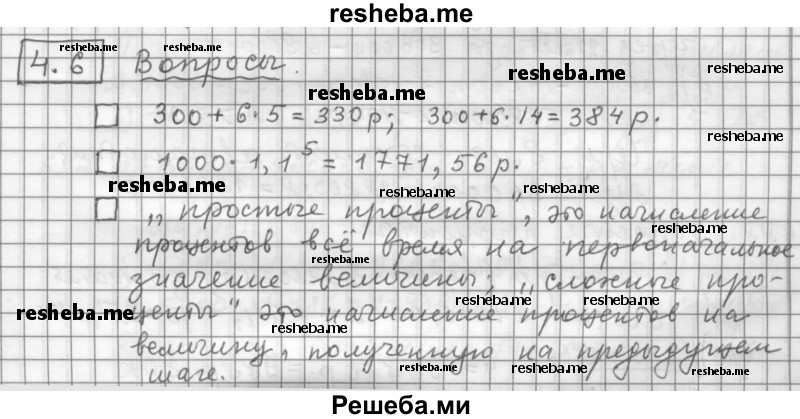 resheba.me
4.6 Вопросы.
resheba.me resheba.me
resheba.me resheba.me
resheba.me
300 + 6 · 5 = 330р; 300 + 6 · 14 = 384р.
resheba.me
1000 · 1,1⁵ = 1771,56р.
resheba.me
resheba.me resheba.me resheba.me
„простые проценты", это начисление
resheba.me
процентов всё время на первоначальное
resheba.me
значение величины; „сложные про-
resheba.me resheba.me resheba.me
центы" это начисление процентов на
resheba.me
величину, полученную на предыдущем
шаге.
resheba.me resheba.me resheba.me
Решеба.ми